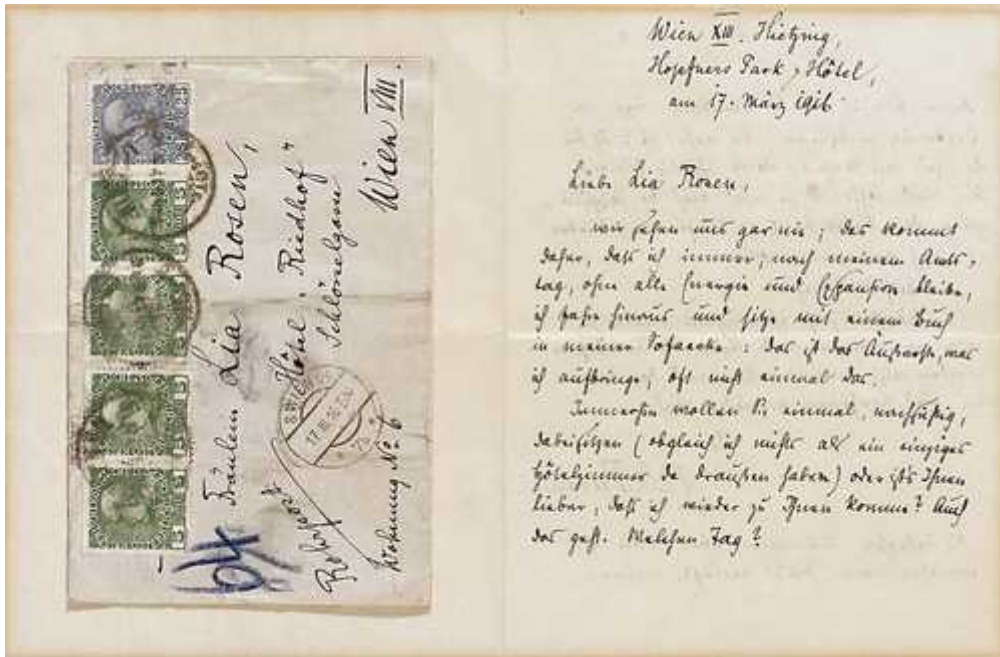 Fräulein Lia Rosen,
Hôtel "Riedhof"
Schlösselgasse
Wien VIII.
Rohrpost
Wohnung No 6
64
17.III.16
Wien XIII. Hietzing,
Hopfners Park-Hôtel,
am 17. März 1916.
Liebe Lia Rosen,
wir sehen uns gar nie; das kommt
daher, dass ich immer, nach meinem Amts-
tag, ohne alle Energie und Expansion bleibe,
ich fahre hinaus und sitze mit einem Buch
in meiner Sofaecke: das ist das Äußerste, was
ich aufbringe, oft nicht einmal das.
Immerhin wollen Sie einmal,
dabeisitzen (obgleich ich nichts als ein einziges
Hôtelzimmer da draußen habe) oder ists Ihnen
lieber, daß ich wieder zu Ihnen komme? Auch
das geht. Welchen Tag?